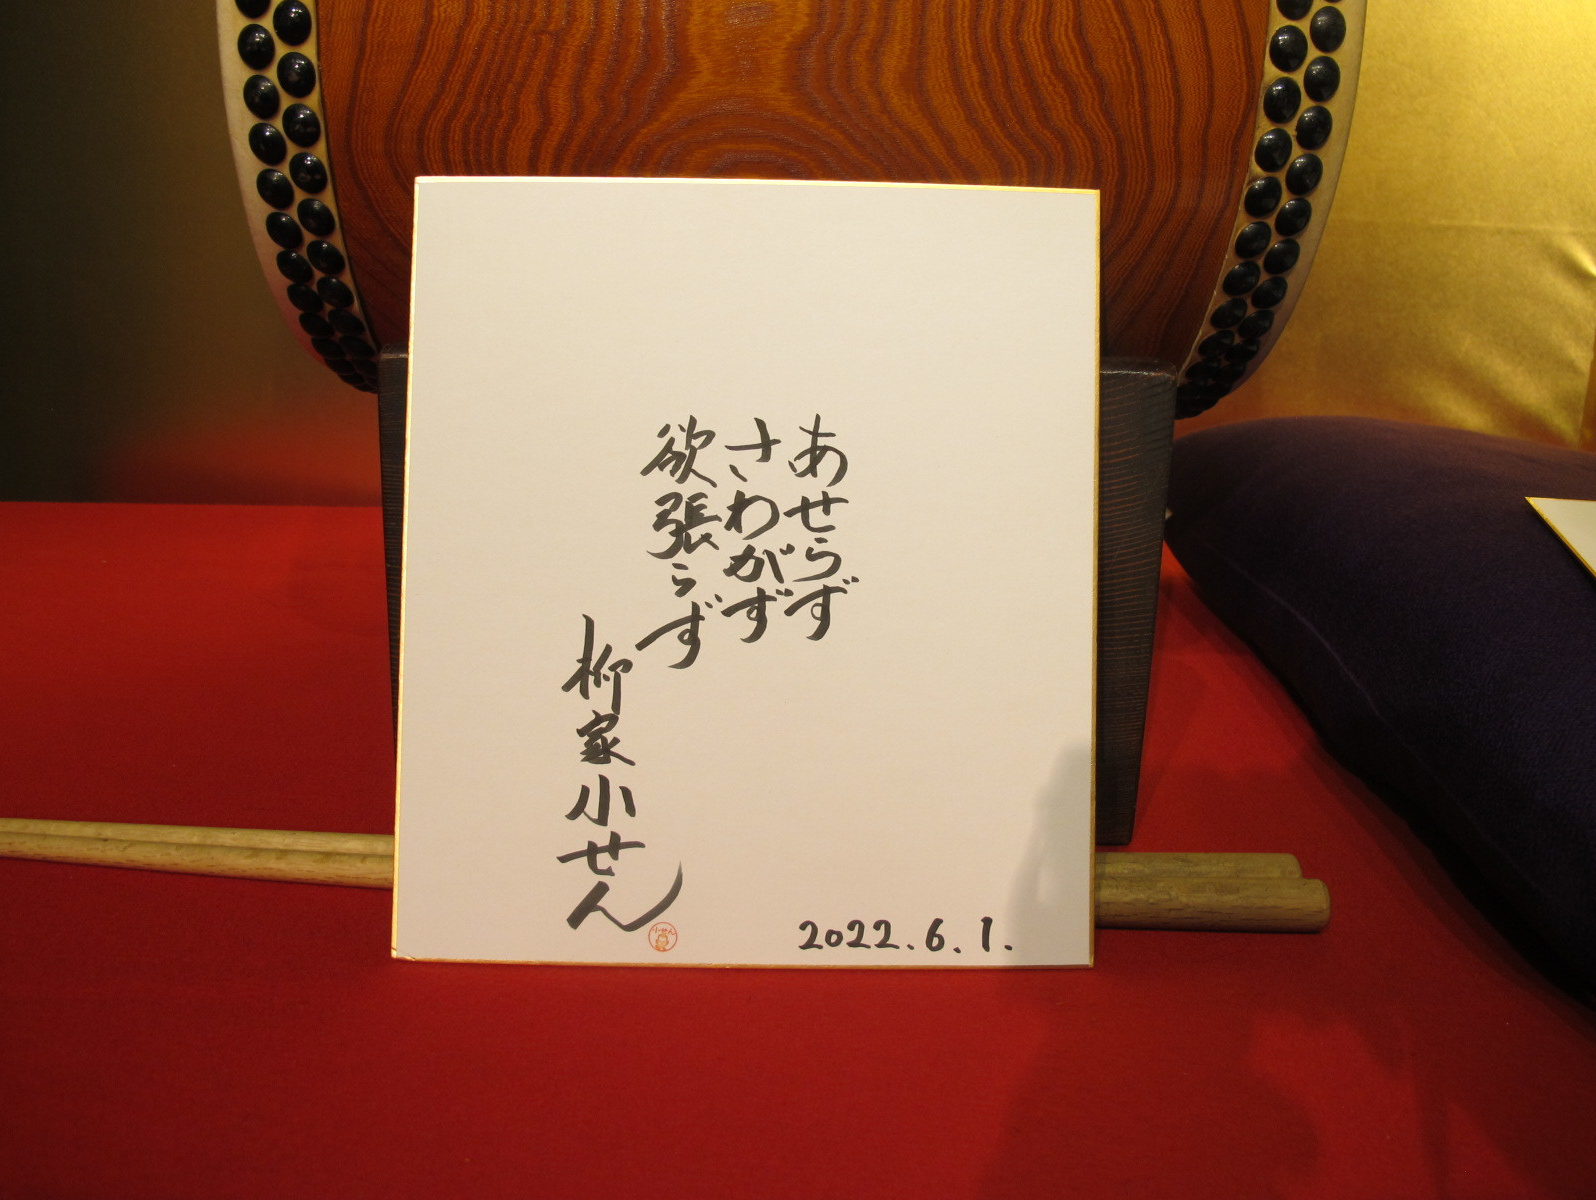 あせらず
さわがず
欲張らず
柳家小せん
2022.6.1.